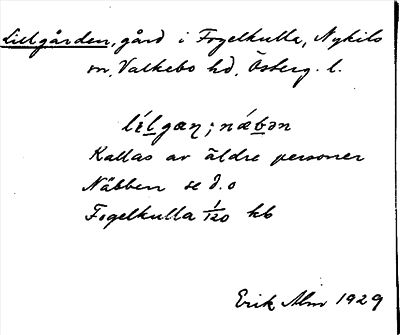 Lillgården, gård i Fogelkulla, Nykils
sn, Valkebo hd, Österg. l.
Kallas av äldre personer
Näbben se d.o
Fogelkulla 1/120 hb
Erik Alm 1929